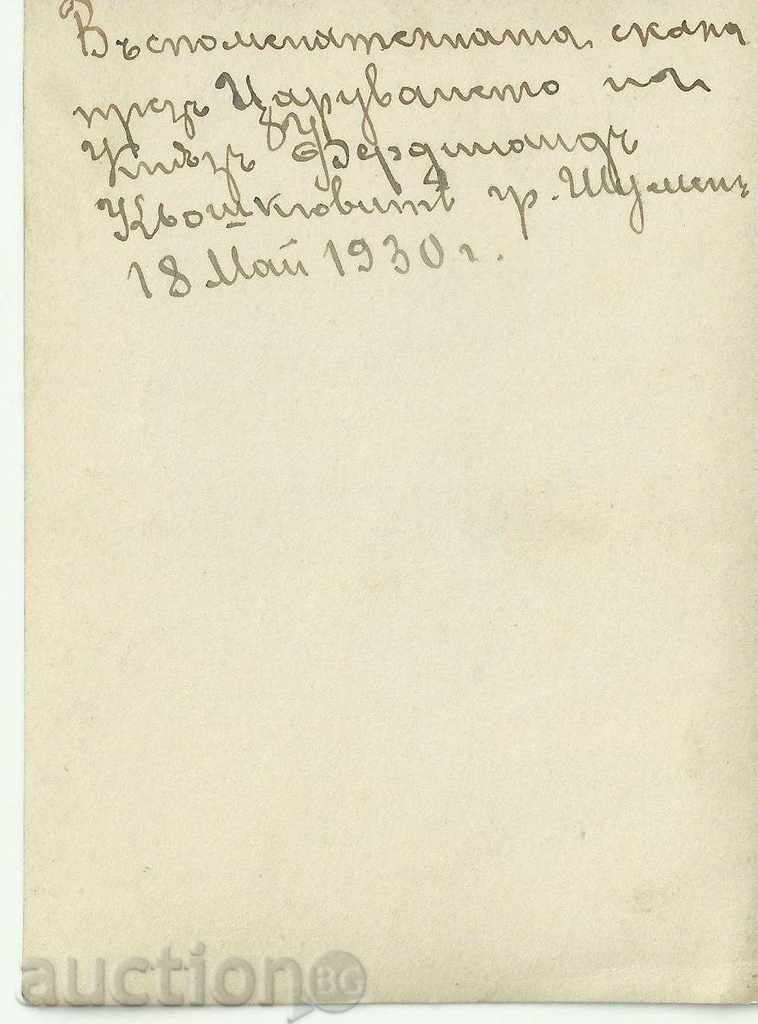 Въспоменателната скала
през Царуването на
Князъ Фердинандъ
Кьошковитѣ гр. Шуменъ
18 Май 1930 г.
auctionBG